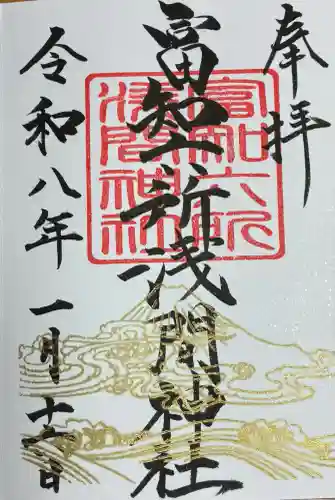 奉拝
富知六所浅間神社
富知六所
浅間神社
令和八年一月十一日